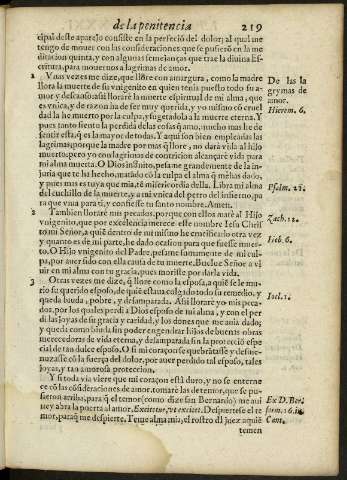 de la penitencia 219
cipal deste aparejo consiste en la perfeciõ del dolor; al qual me
tengo de mouer con las consideraciones que se pusierõ en la me
ditacion quinta, y con algunas semejanças que trae la diuina Es-
critura, para mouernos a lagrimas de amor.
1 Vnas vezes me dize, que llõre con amargura, como la madre
llora la muerte de su vnigenito en quien tenia puesto todo su a-
mor y descanso: assi lloraré la muerte espiritual de mi alma, que
es vnica, y de razon ha de ser muy querida, y yo mismo cõ cruel
dad la he muerto por la culpa, y sugetado a la muerte eterna. Y
pues tanto siento la perdida de las cosas q̃ amo, mucho mas he de
sentir esta, q̃ es la mayor de todas. Y aqui son bien empleadas las
lagrimas, porque la madre por mas q̃ llore, no dará vida al hijo
muerto: pero yo con lagrimas de contricion alcançaré vida para
mi alma muerta. O Dios infinito, pesame grandemente de la in-
juria que te he hecho, matãdo cõ la culpa el alma q̃ me has dado,
y pues mas es tuya que mia, tẽ misericordia della. Libra mi alma
del cuchillo de la muerte, y a mi vnica del perro del infierno, pa
ra que viua para ti, y confiesse tu santo nombre. Amen.
De las la
grymas de
amor.
Hierem. 6.
Psalm. 21.
2 Tambien lloraré mis pecados, porque con ellos maté al Hijo
vnigenito, que por excelencia merece este nombre Iesu Chris̃
to mi Señor, a quiẽ dentro de mi mismo he crucificado otra vez
y quanto es de mi parte, he dado ocasion para que fuesse muer-
to. O Hijo vnigenito del Padre, pesame sumamente de mi cul-
pa, por auer sido con ella causa de tu muerte. Buelue Señor a vi
uir en mi alma con tu gracia, pues moriste por darla vida.
Zach. 12.
Heb. 6.
3 Otras vezes me dize, q̃ llore como la esposa, a quiẽ se le mu-
rio su querido esposo, de quiẽ estaua colgado todo su remedio, y
queda biuda, pobre, y desamparada. Assi lloraré yo mis peca-
dos, por los quales perdi a Dios esposo de mi alma, y con el per
di las joyas de su gracia y caridad, y los dones que me auia dado;
y queda como biuda sin poder engendrar hijos de buenas obras
merecedoras de vida eterna, y desamparada sin la protecciõ espe
cial de tan dulce esposo. O si mi coraçon se quebrãtasse y desme-
nuzasse cõ la fuerça del dolor, por auer perdido tal esposo, tales
joyas, y tan amorosa proteccion.
Ioel. 1.
Y si toda via viere que mi coraçon està duro, y no se enterne
ce cõ las cõsideraciones de amor, tomaré las de temor, que se pu-
sieron arriba, para q̃ el temor (como dize san Bernardo) me mue
ue y abra la puerta al amor. Excitetur, vt excitet. Despiertese el te
mor, paraq̃ me despierte. Teme alma mia, el rostro dl juez aquiẽ
temen
Ex D. Ber.
serm. 16. in
Cant.